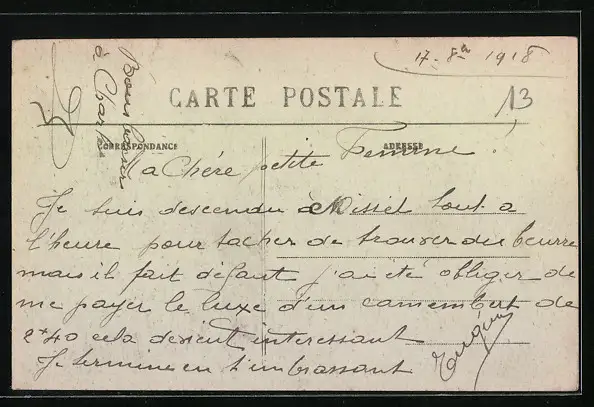 17-8-1918
13
CARTE POSTALE
CORRESPONDANCE
ADRESSE
Bons baisers
à Charles
a Chére petite Femme !
Je suis descendu à Missel tout a
l'heure pour tacher de trouver du beurre
mais il fait défaut j'ai été obliger de
me payer le luxe d'un camembert de
2f40 cela devient interessant
Je termine en t'embrassant